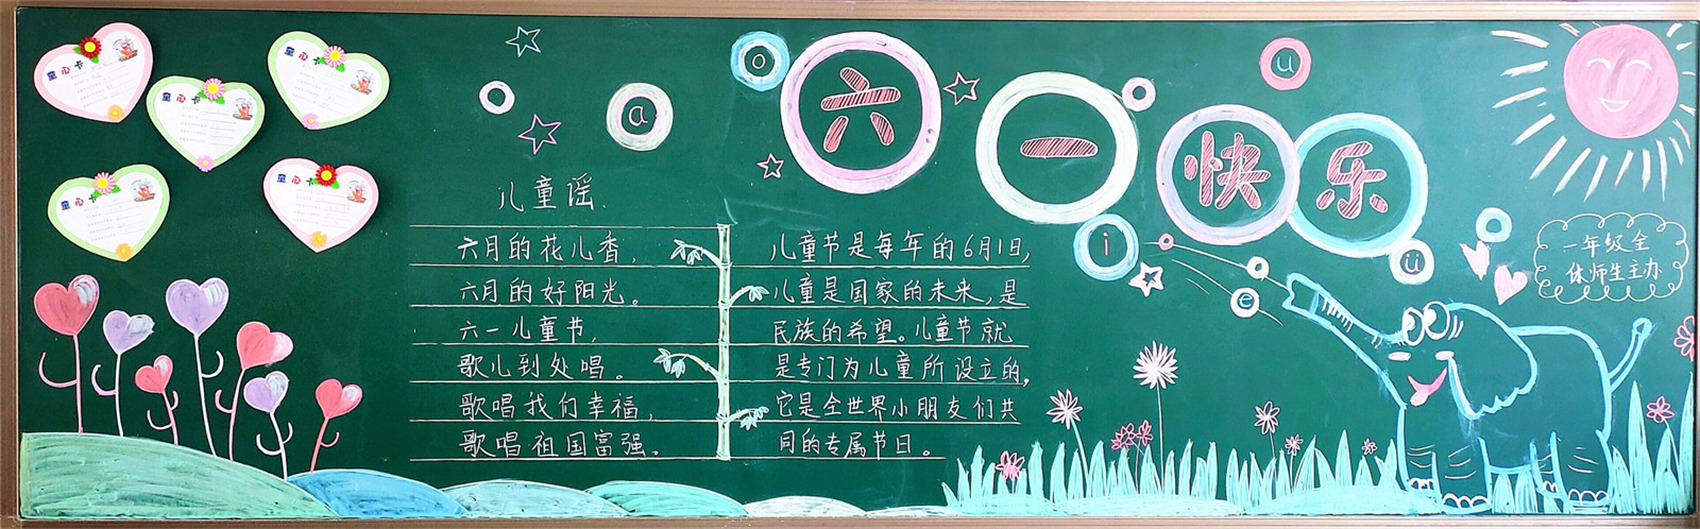 童心卡
童心卡
童心卡
童心卡
童心卡
o
a
u
六一快乐
i
e
ü
儿童谣
六月的花儿香,
六月的好阳光。
六一儿童节,
歌儿到处唱。
歌唱我们幸福,
歌唱祖国富强。
儿童节是每年的6月1日,
儿童是国家的未来,是
民族的希望。儿童节就
是专门为儿童所设立的,
它是全世界小朋友们共
同的专属节日。
一年级全
体师生主办